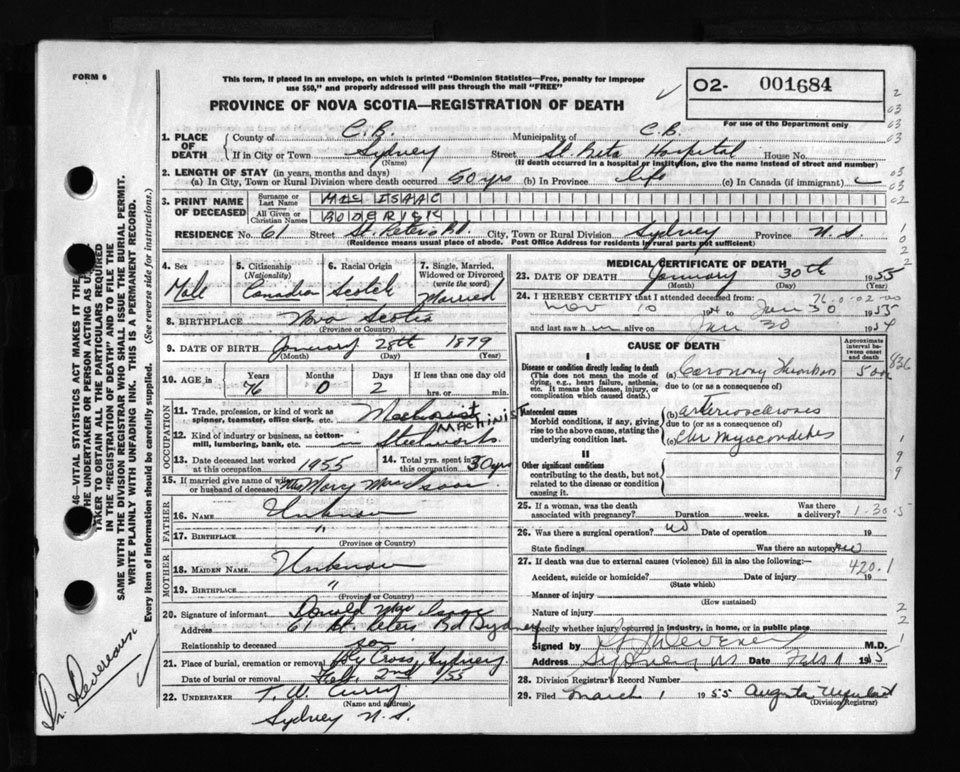 FORM 6
This form, if placed in an envelope, on which is printed "Dominion Statistics—Free, penalty for improper
use $50," and properly addressed will pass through the mail "FREE"
O2- 001684
For use of the Department only
PROVINCE OF NOVA SCOTIA—REGISTRATION OF DEATH
1. PLACE OF DEATH
County of C.B. Municipality of C.B.
If in City or Town Sydney Street St. Rita Hospital House No.
(Name) (If death occurred in a hospital or institution, give the name instead of street and number)
2. LENGTH OF STAY (in years, months and days)
(a) In City, Town or Rural Division where death occurred 50 yrs (b) In Province life (c) In Canada (if immigrant)
3. PRINT NAME OF DECEASED
Surname or Last Name MAC ISAAC
All Given or Christian Names RODERICK
RESIDENCE No. 61 Street St. Peters Rd. City, Town or Rural Division Sydney Province N.S.
(Residence means usual place of abode. Post Office Address for residents in rural parts not sufficient)
4. Sex
Male
5. Citizenship
(Nationality)
Canadian
6. Racial Origin
Scotch
7. Single, Married, Widowed or Divorced
(write the word)
Married
8. BIRTHPLACE Nova Scotia
(Province or Country)
9. DATE OF BIRTH January 28th 1879
(Month) (Day) (Year)
10. AGE in
Years Months Days If less than one day old
76 0 2 hrs. or min.
OCCUPATION
11. Trade, profession, or kind of work as
spinner, teamster, office clerk, etc. Machinist
MACHINIST
12. Kind of industry or business, as cotton-
mill, lumbering, bank, etc. in Steelworks
13. Date deceased last worked
at this occupation 1955
14. Total yrs. spent in
this occupation 30 yrs
15. If married give name of wife
or husband of deceased Mrs Mary MacIsaac
FATHER
16. NAME Unknown
17. BIRTHPLACE "
(Province or Country)
MOTHER
18. MAIDEN NAME Unknown
19. BIRTHPLACE "
(Province or Country)
20. Signature of informant Donald MacIsaac
Address 61 St. Peters Rd Sydney
Relationship to deceased son
21. Place of burial, cremation or removal Holy Cross, Sydney
Date of burial or removal Feb. 2nd 1955
22. UNDERTAKER T. W. Curry
(Name and address)
Sydney N.S.
MEDICAL CERTIFICATE OF DEATH
23. DATE OF DEATH January 30th 1955
(Month) (Day) (Year)
24. I HEREBY CERTIFY that I attended deceased from:
Nov 10 1954 to Jan 30 1955
and last saw him alive on Jan 30 1954
CAUSE OF DEATH
Approximate interval between onset and death
I
Disease or condition directly leading to death
(This does not mean the mode of
dying, e.g., heart failure, asthenia,
etc. It means the disease, injury, or
complication which caused death.)
(a) Coronary Thrombosis
due to (or as a consequence of)
Antecedent causes
Morbid conditions, if any, giving
rise to the above cause, stating the
underlying condition last.
(b) arteriosclerosis
due to (or as a consequence of)
(c) Chr Myocarditis
II
Other significant conditions
contributing to the death, but not
related to the disease or condition
causing it.
25. If a woman, was the death
associated with pregnancy? Duration weeks. Was there a delivery?
26. Was there a surgical operation? no Date of operation 19
State findings Was there an autopsy? no
27. If death was due to external causes (violence) fill in also the following:—
420.1
Accident, suicide or homicide? Date of injury 19
(State which)
Manner of injury
(How sustained)
Nature of injury
Specify whether injury occurred in industry, in home, or in public place
Signed by M.D.
Address Sydney NS Date Feb 1 1955
28. Division Registrar's Record Number
29. Filed March 1 1955 Augusta
(Division Registrar)
46—VITAL STATISTICS ACT MAKES IT THE
THE UNDERTAKER OR PERSON ACTING AS
TAKER TO OBTAIN ALL THE PARTICULARS REQUIRED
IN THE "REGISTRATION OF DEATH" AND TO FILE THE
SAME WITH THE DIVISION REGISTRAR WHO SHALL ISSUE THE BURIAL PERMIT.
WRITE PLAINLY WITH UNFADING INK. THIS IS A PERMANENT RECORD.
Every item of information should be carefully supplied. (See reverse side for instructions.)
Dr.